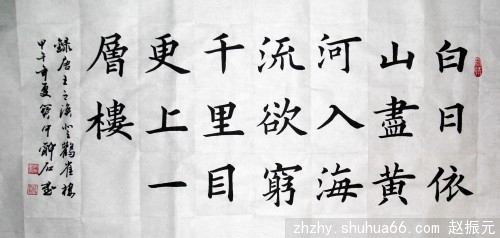 白日依
山盡黄
河入海
流欲窮
千里目
更上一
層樓
錄唐王之渙登鸛雀樓
甲午年夏
zhzhy.shuhua66.com 赵振元